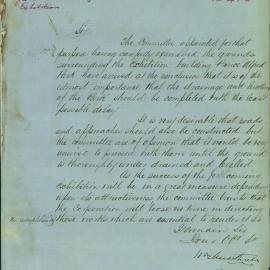 Exhibition
Sir
The Committee appointed for that
purpose having carefully examined the grounds
surrounding the Exhibition building Prince Alfred
Park have arrived at the conclusion that it is of the
utmost importance that the drainage and
of the Park should be completed with the least
possible delay.
It is very desirable that roads
and approaches should also be constructed but
the committee are of opinion that it would be very
unwise to proceed with them until the ground
is thoroughly under drained and
As the success of the forthcoming
exhibition will be in a great measure depending
upon its attractiveness the committee trusts that
the Corporation will loose no time in directing
the completion of
those works which are essential to render it so
I remain Sir
Your Obt St